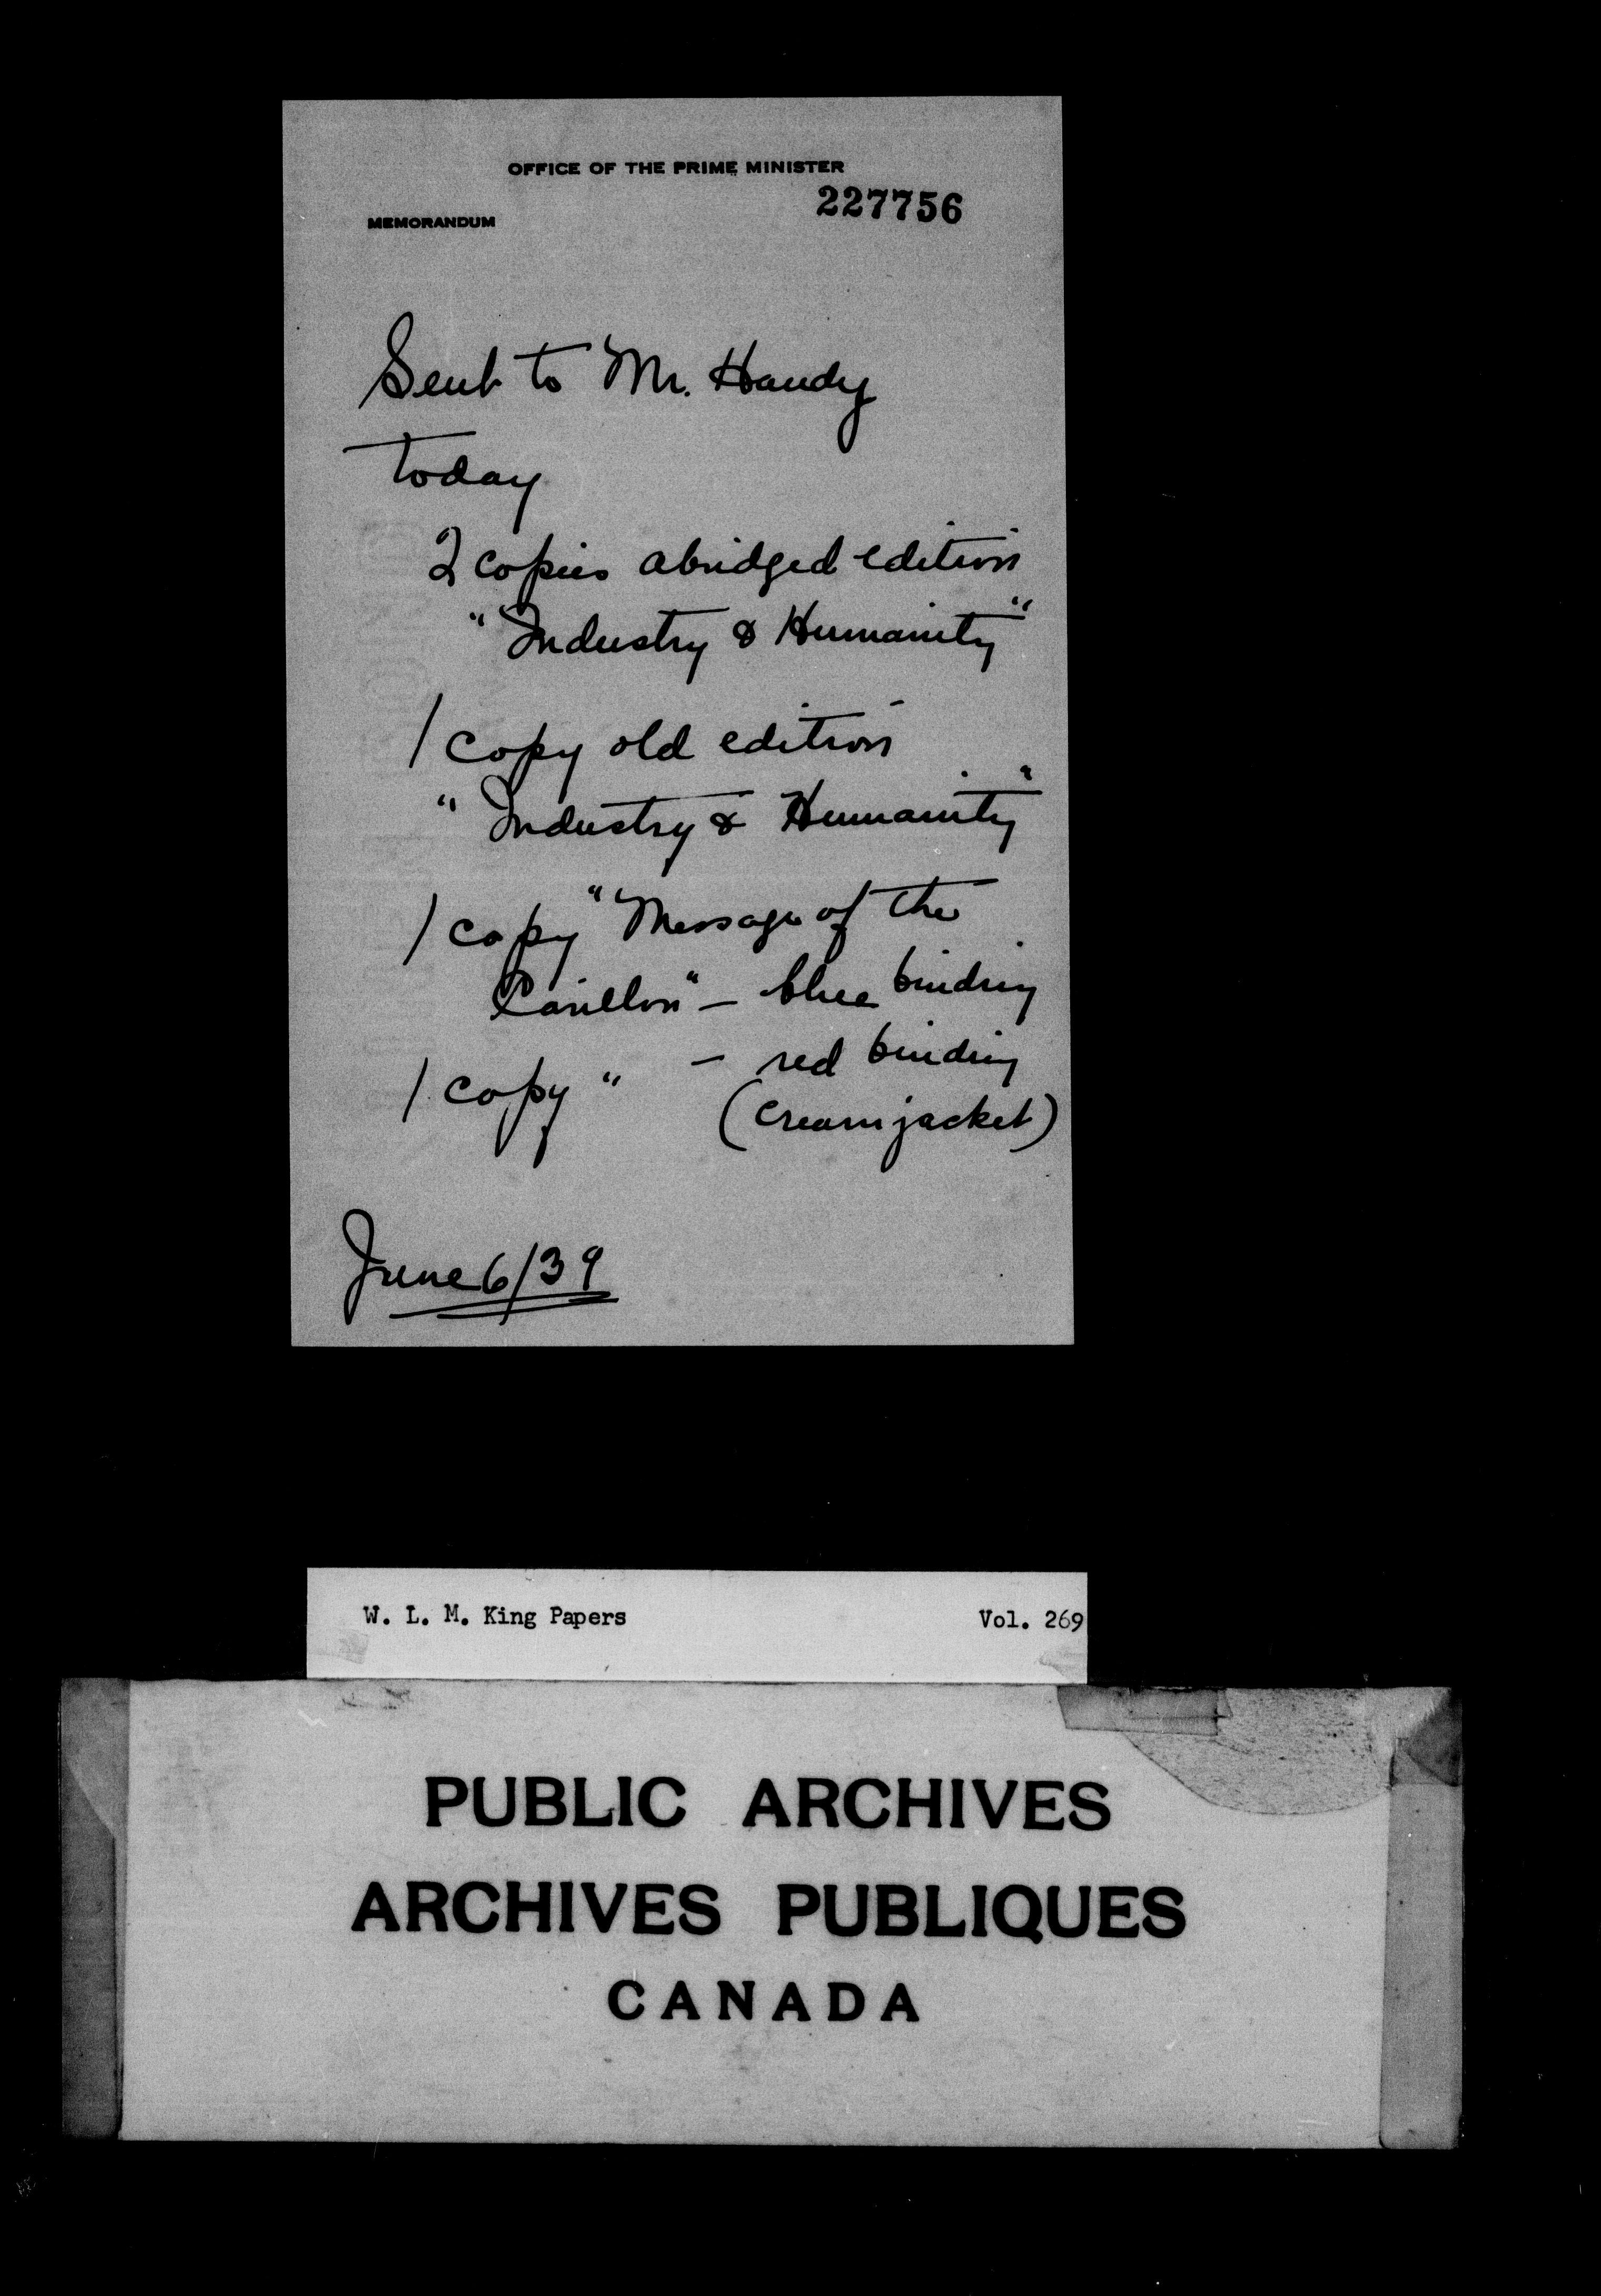 OFFICE OF THE PRIME MINISTER
227756
MEMORANDUM
Sent to Mr. Handy
today
2 copies abridged edition
"Industry & Humanity"
1 copy old edition
"Industry & Humanity"
1 copy "Message of the
Carillon" — blue binding
1 copy " — red binding
(cream jacket)
June 6/39
W. L. M. King Papers Vol. 269
PUBLIC ARCHIVES
ARCHIVES PUBLIQUES
CANADA